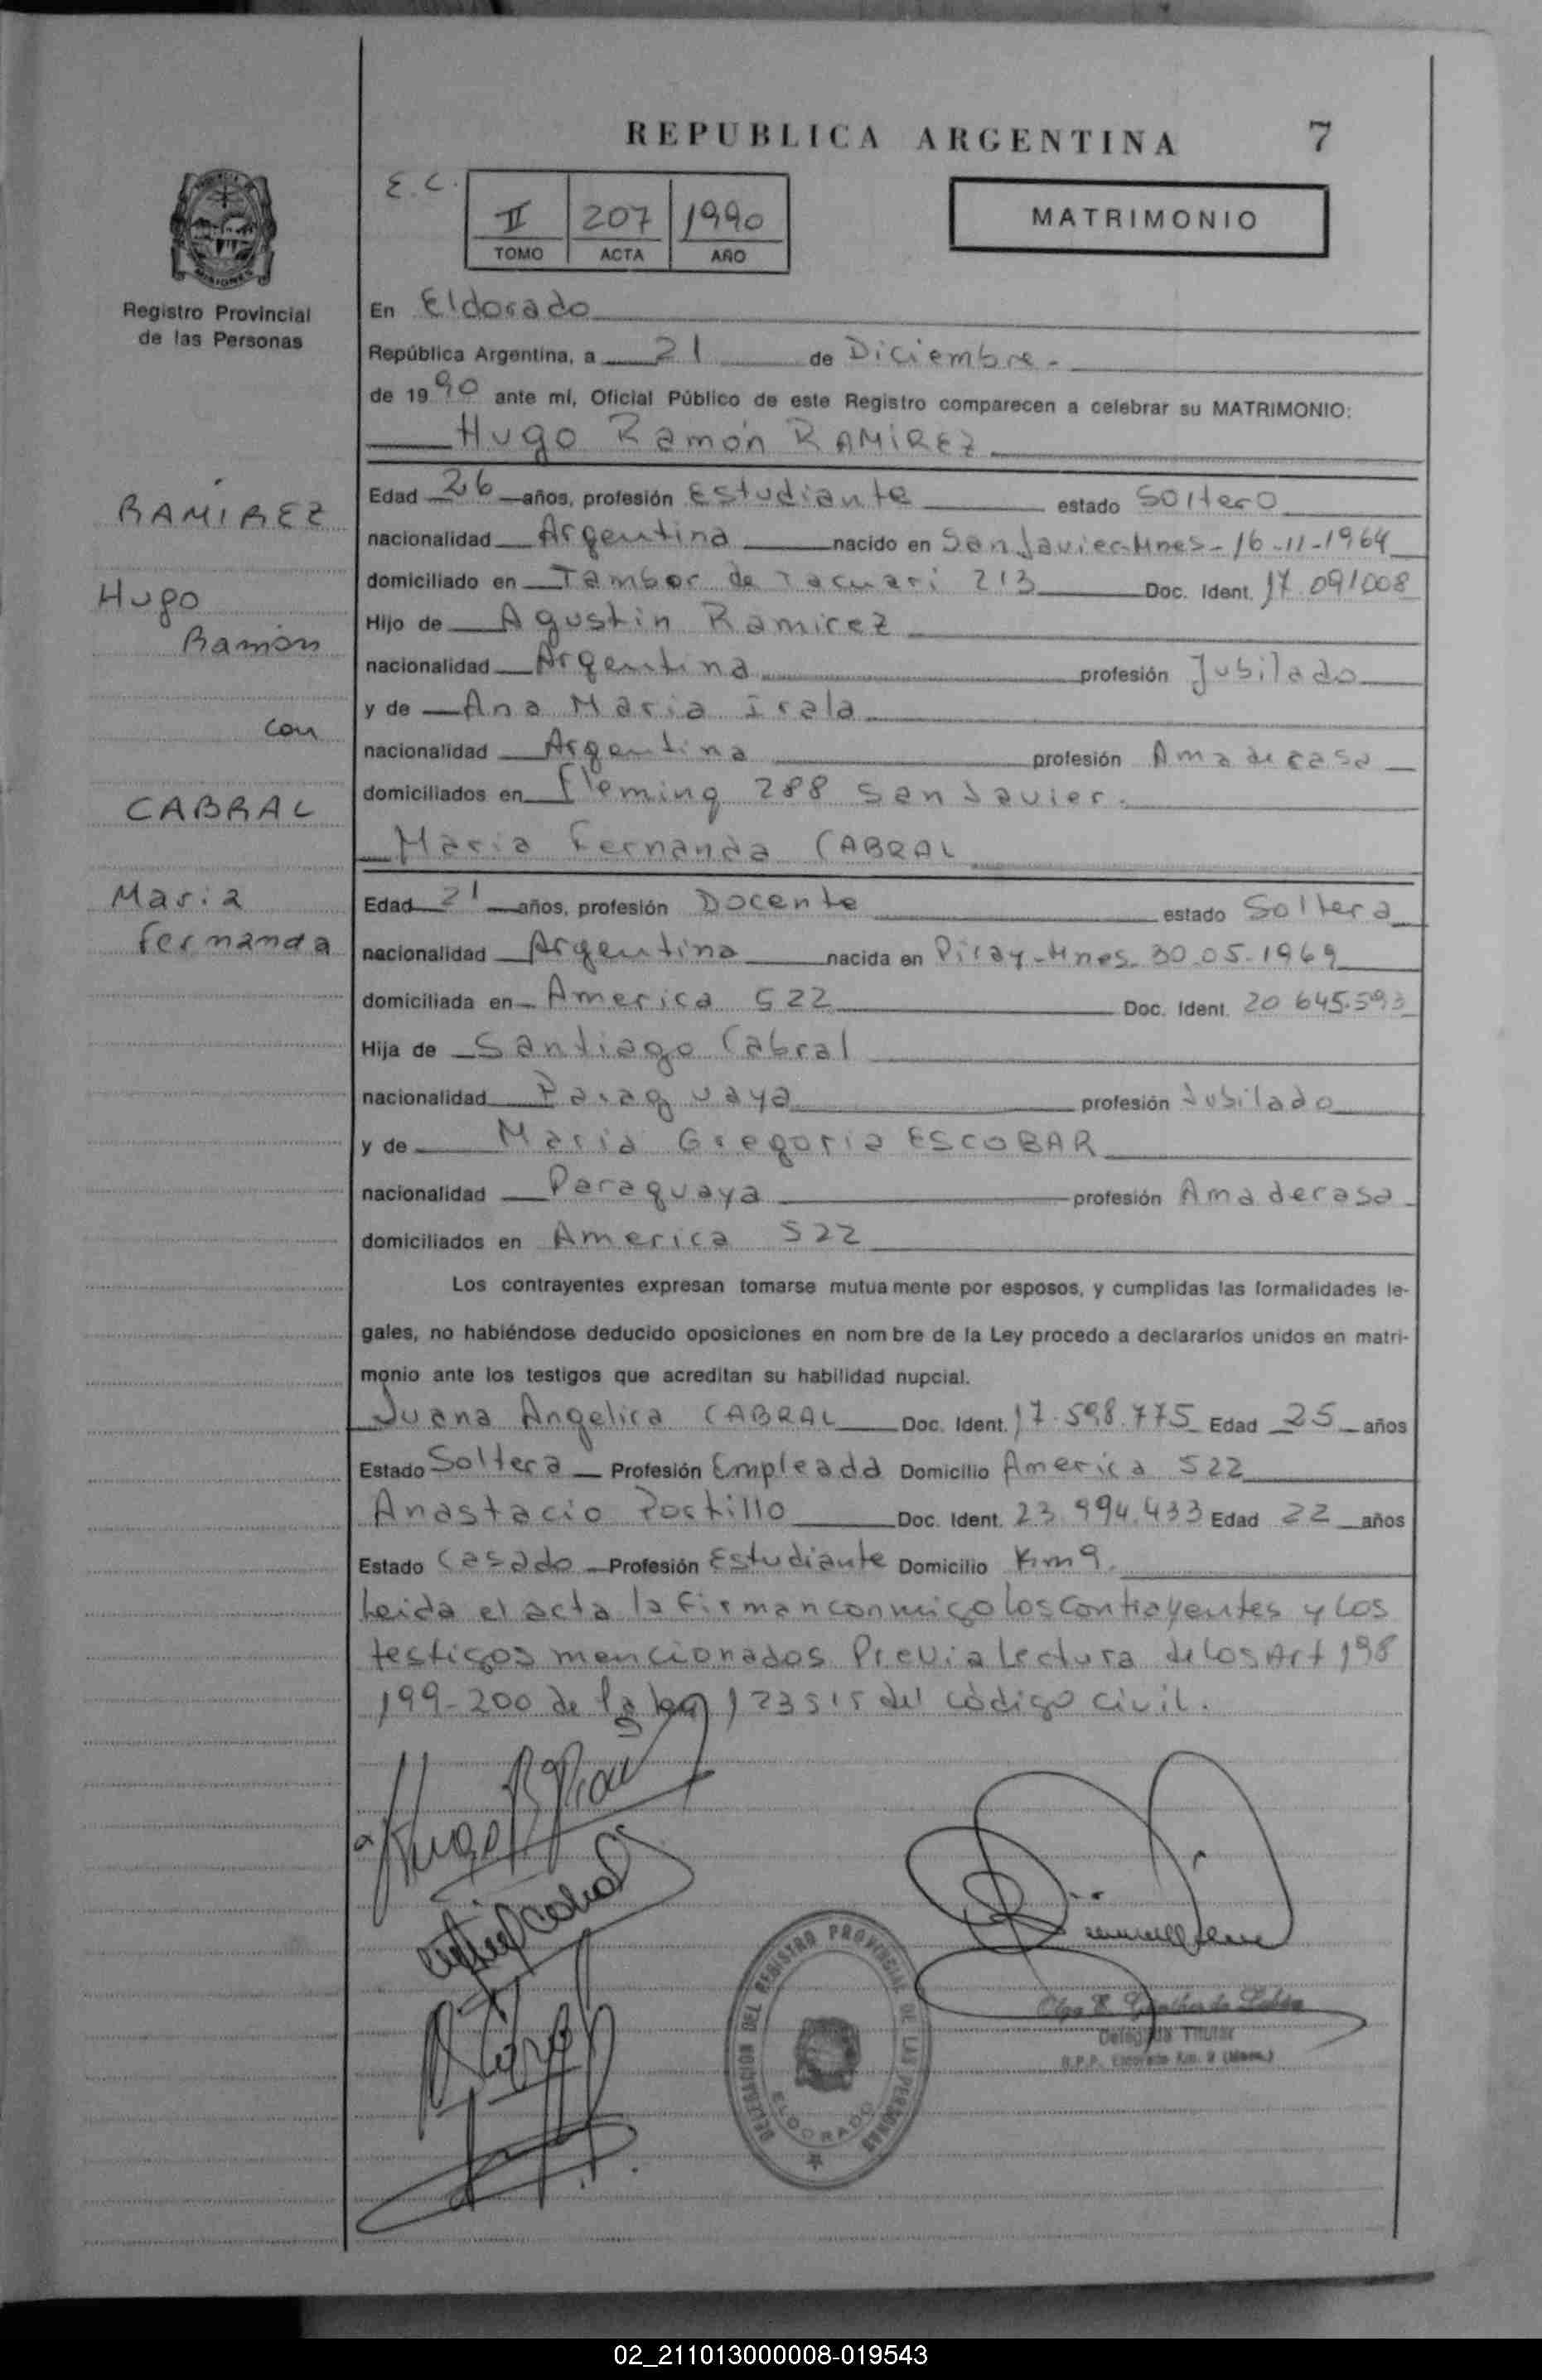 REPUBLICA ARGENTINA 7
E.C. II 207 1990
TOMO ACTA AÑO
MATRIMONIO
MISIONES
Registro Provincial
de las Personas
En Eldorado
República Argentina, a 21 de Diciembre.-
de 1990 ante mí, Oficial Público de este Registro comparecen a celebrar su MATRIMONIO:
Hugo Ramón RAMIREZ
Edad 26 años, profesión Estudiante estado Soltero
nacionalidad Argentina nacido en San Javier-Mnes- 16-11-1964
domiciliado en Tambor de Tacuari 213 Doc. Ident. 17.091008
Hijo de Agustin Ramirez
nacionalidad Argentina profesión Jubilado
y de Ana Maria Irala
nacionalidad Argentina profesión Ama de casa
domiciliados en Fleming 288 San Javier.
Maria Fernanda CABRAL
Edad 21 años, profesión Docente estado Soltera
nacionalidad Argentina nacida en Piray-Mnes. 30.05.1969
domiciliada en America 522 Doc. Ident. 20 645.593
Hija de Santiago Cabral
nacionalidad Paraguaya profesión Jubilado
y de Maria Gregoria ESCOBAR
nacionalidad Paraguaya profesión Ama de casa
domiciliados en America 522
Los contrayentes expresan tomarse mutuamente por esposos, y cumplidas las formalidades le-
gales, no habiéndose deducido oposiciones en nombre de la Ley procedo a declararlos unidos en matri-
monio ante los testigos que acreditan su habilidad nupcial.
Juana Angelica CABRAL Doc. Ident. 17.598.775 Edad 25 años
Estado Soltera Profesión Empleada Domicilio America 522
Anastacio Portillo Doc. Ident. 23.994.433 Edad 22 años
Estado Casado Profesión Estudiante Domicilio Km 9.
Leida el acta la firman conmigo los contrayentes y los
testigos mencionados Previa Lectura de los Art 198
199-200 de la ley 123515 del código civil.
RAMIREZ
Hugo
Ramón
con
CABRAL
Maria
Fernanda
DELEGACION DEL REGISTRO PROVINCIAL DE LAS PERSONAS
ELDORADO
Delegada Titular
R.P.P. Eldorado Km. 9 (Mnes.)
02_211013000008-019543